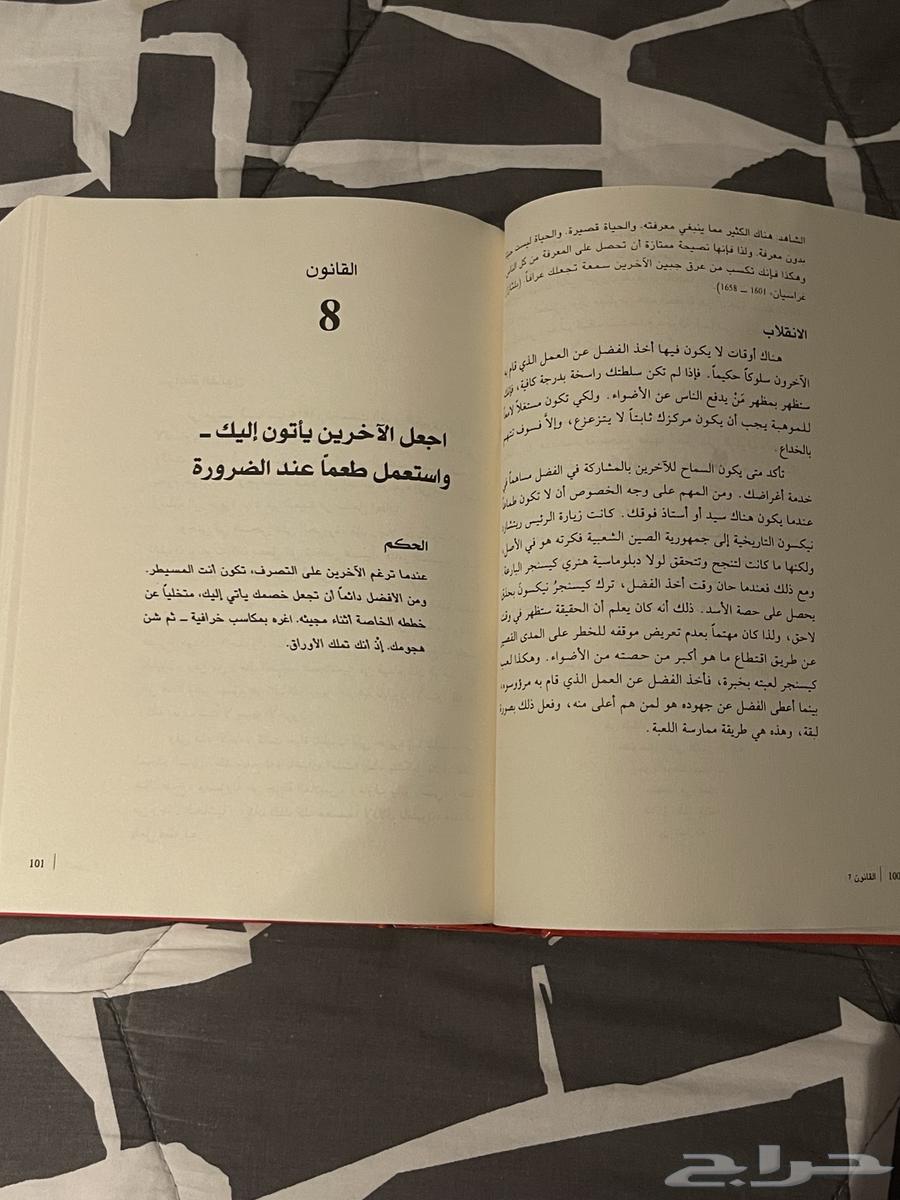 الشاهد: هناك الكثير مما ينبغي معرفته. والحياة قصيرة. والحياة ليست
بدون معرفة. ولذا فإنها نصيحة ممتازة أن تحصل على المعرفة من كل
وهكذا فإنك تكسب من عرق جبين الآخرين سمعة تجعلك عرافاً.
غراسيان، 1601 ــ 1658).
الانقلاب
هناك أوقات لا يكون فيها أخذ الفضل عن العمل الذي قام به
الآخرون سلوكاً حكيماً. فإذا لم تكن سلطتك راسخة بدرجة كافية، فإنك
ستظهر بمظهر مَنْ يدفع الناس عن الأضواء. ولكي تكون مستغلاً
للموهبة يجب أن يكون مركزك ثابتاً لا يتزعزع، وإلاَّ فسوف تتهم
بالخداع.
تأكد متى يكون السماح للآخرين بالمشاركة في الفضل مساهماً في
خدمة أغراضك. ومن المهم على وجه الخصوص أن لا تكون طماعاً
عندما يكون هناك سيد أو أستاذ فوقك. كانت زيارة الرئيس ريتشارد
نيكسون التاريخية إلى جمهورية الصين الشعبية فكرته هو في الأصل،
ولكنها ما كانت لتنجح وتتحقق لولا دبلوماسية هنري كيسنجر البارعة.
ومع ذلك فعندما حان وقت أخذ الفضل، ترك كيسنجرُ نيكسونَ
يحصل على حصة الأسد. ذلك أنه كان يعلم أن الحقيقة ستظهر في وقت
لاحق، ولذا كان مهتماً بعدم تعريض موقفه للخطر على المدى القصير
عن طريق اقتطاع ما هو أكبر من حصته من الأضواء. وهكذا لعب
كيسنجر لعبته بخبرة، فأخذ الفضل عن العمل الذي قام به مرؤوسوه،
بينما أعطى الفضل عن جهوده هو لمن هم أعلى منه، وفعل ذلك بصورة
لبقة، وهذه هي طريقة ممارسة اللعبة.
100 | القانون 7
القانون
8
اجعل الآخرين يأتون إليك ــ
واستعمل طعماً عند الضرورة
الحكم
عندما ترغم الآخرين على التصرف، تكون أنت المسيطر.
ومن الأفضل دائماً أن تجعل خصمك يأتي إليك، متخلياً عن
خططه الخاصة أثناء مجيئه. اغره بمكاسب خرافية ــ ثم شن
هجومك. إذْ أنك تملك الأوراق.
101
حراج